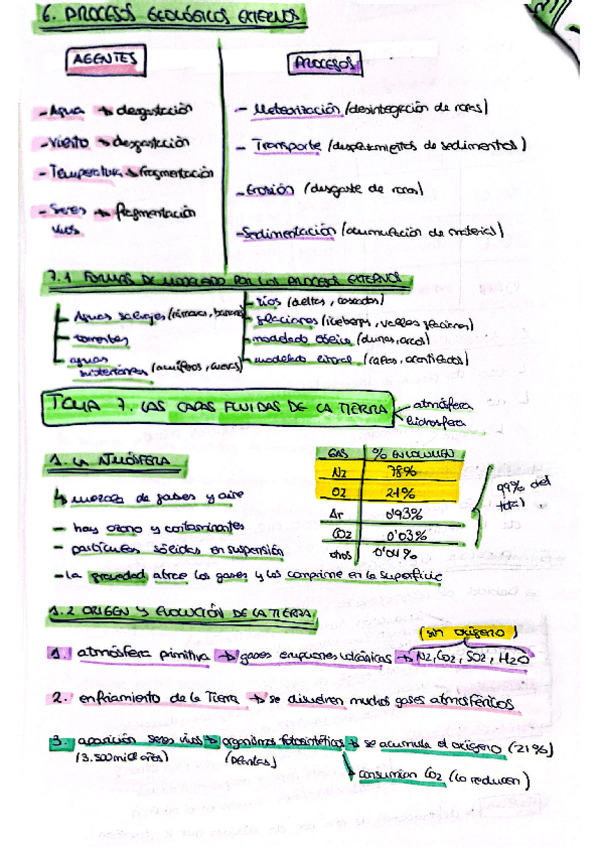 6. PROCESOS GEOLÓGICOS EXTERNOS
AGENTES
- Agua → desgastación
- Viento → desgastación
- Temperatura → fragmentación
- Seres vivos → fragmentación
PROCESOS
- Meteorización (desintegración de rocas)
- Transporte (desplazamientos de sedimentos)
- Erosión (desgaste de rocas)
- Sedimentación (acumulación de material)
7.1 FORMAS DE MODELADO POR LOS PROCESOS EXTERNOS
- Aguas salvajes (cárcavas,
- torrentes
- aguas subterráneas (acuíferos, cuevas)
- ríos (deltas, cascadas)
- glaciares (icebergs, valles glaciares)
- modelado eólico (dunas, arcos)
- modelado litoral (cabos, acantilados)
TEMA 7. LAS CAPAS FLUIDAS DE LA TIERRA
atmósfera
hidrosfera
1. LA ATMÓSFERA
↳ mezcla de gases y aire
- hay ozono y contaminantes
- partículas sólidas en suspensión
- la gravedad atrae los gases y los comprime en la superficie
GAS % EN VOLUMEN
N2 78%
O2 21%
Ar 0'93%
CO2 0'03%
otros 0'04%
99% del total
1.2 ORIGEN Y EVOLUCIÓN DE LA TIERRA
(sin oxígeno)
1. atmósfera primitiva → gases erupciones volcánicas → N2, CO2, SO2, H2O
2. enfriamiento de la Tierra → se disuelven muchos gases atmosféricos
3. aparición seres vivos → organismos fotosintéticos → se acumula el oxígeno (21%)
(3.500 mill años) (plantas)
→ consumían CO2 (lo reducen)